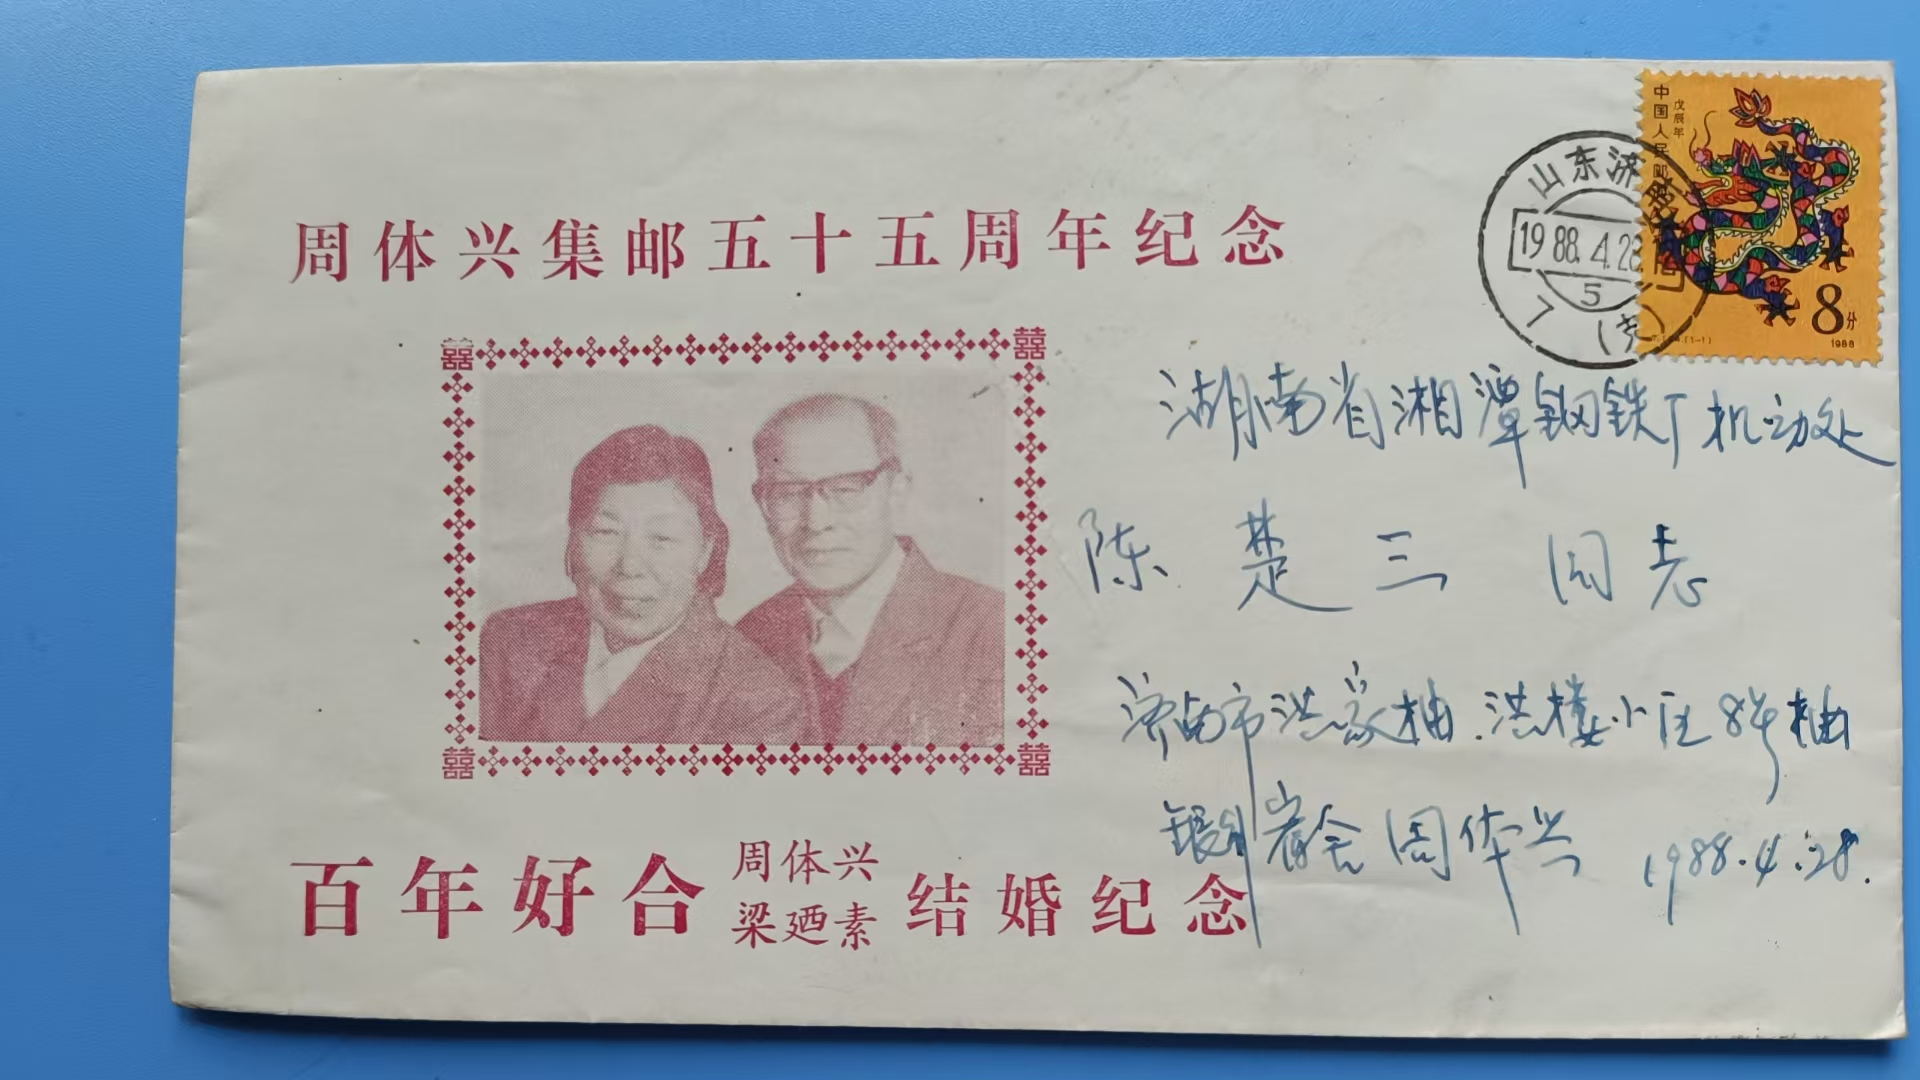 周体兴集邮五十五周年纪念
中国人民邮
戊辰年
8分
(1-1)
1988
山东济
1988.4.28
5
7 (支)
湖南省湘潭钢铁厂机动处
陈楚三同志
济南市洪家楼.洪楼小区8号楼
周体兴 1988.4.28.
百年好合 周体兴 梁廼素 结婚纪念